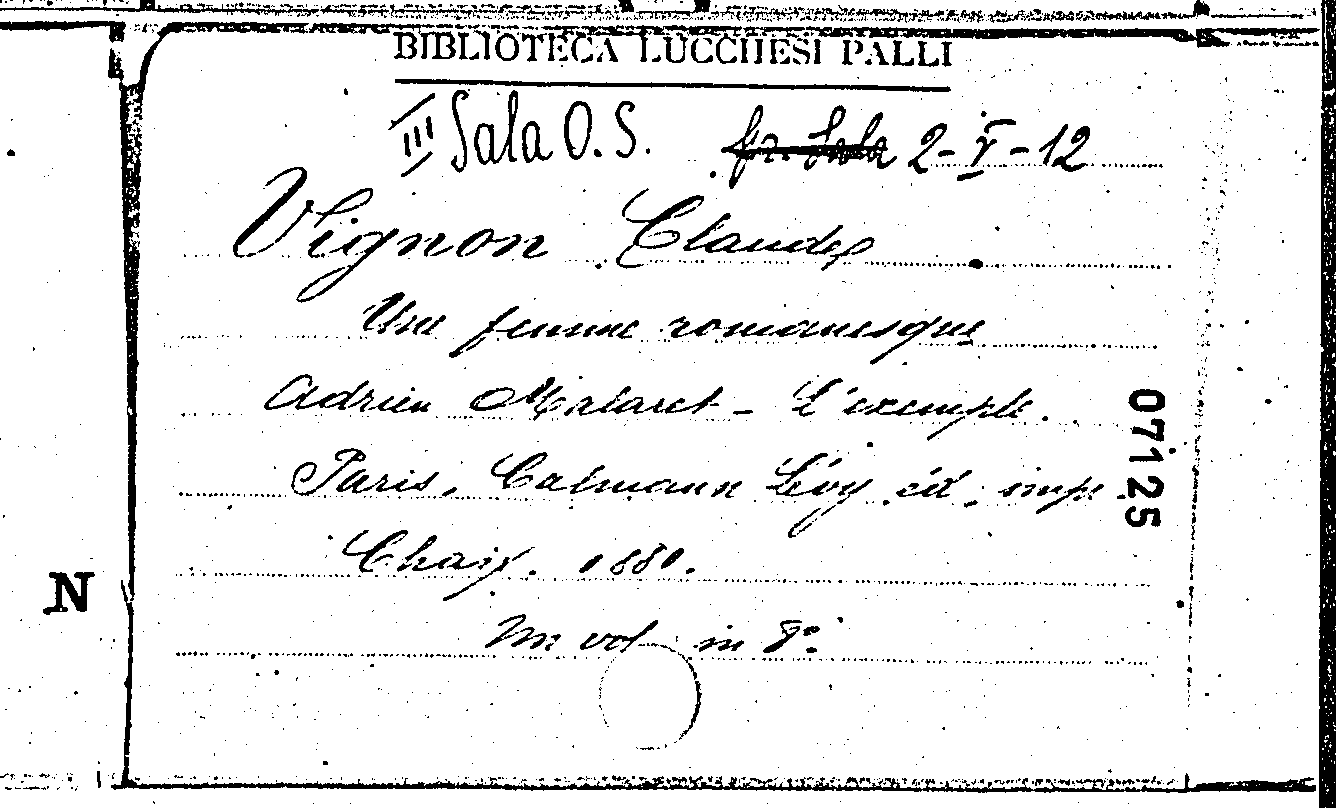 BIBLIOTECA LUCCHESI PALLI
III Sala O.S. gr. Sala 2-V-12
Vignon Claude
Une femme romanesque
Adrien Malaret - L'exemple.
Paris, Calmann Lévy éd., imp.
Chaix. 1880.
Un vol in 8º.
07125
N